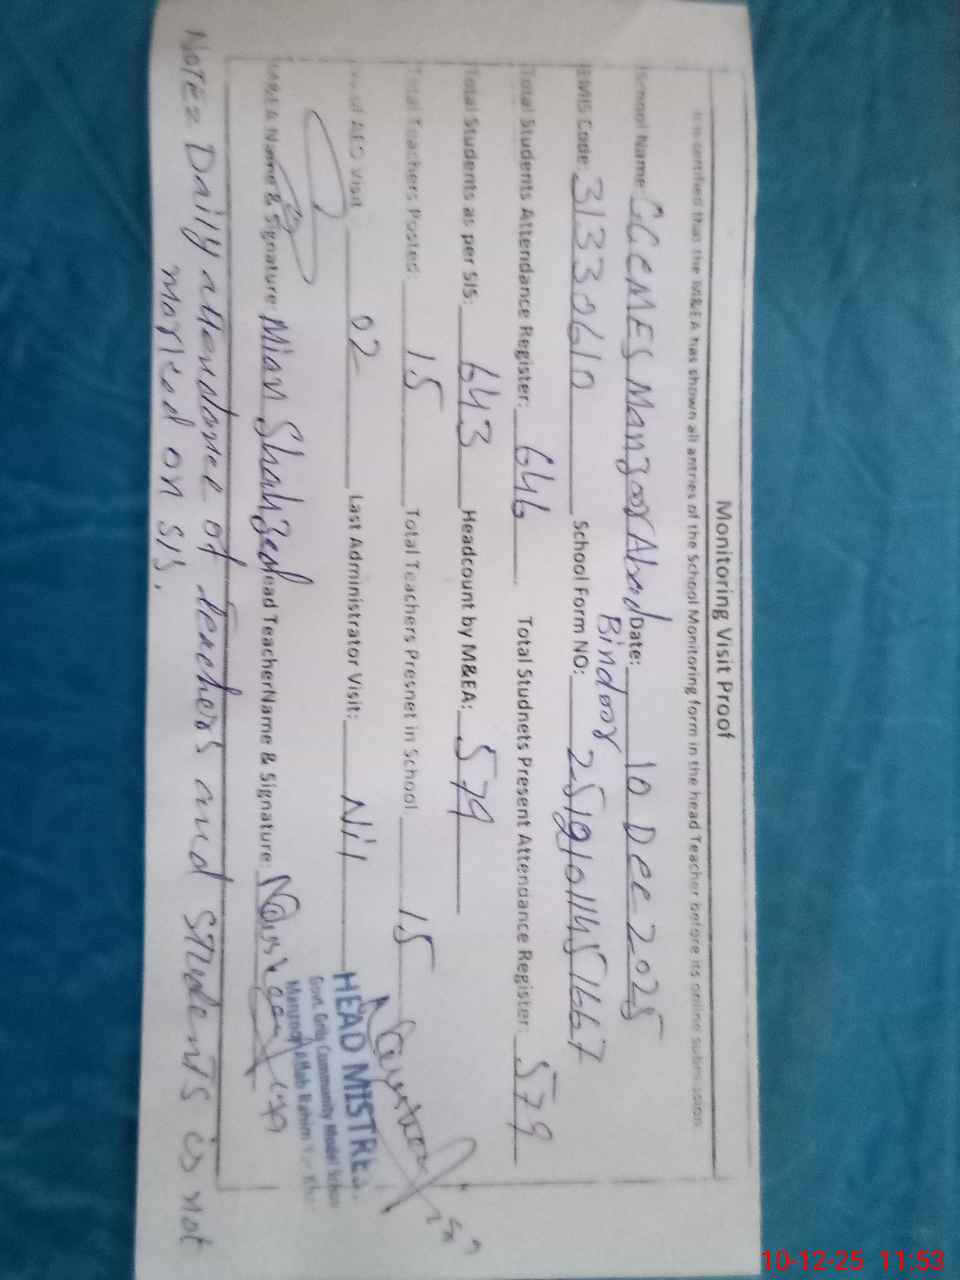 Monitoring Visit Proof
It is certified that the M&EA has shown all entries of the School Monitoring form in the head Teacher before its online submission.
School Name: GGCMES Manzoor Abad Date: 10 Dec 2025
Bindoor
EMIS Code: 31330610 School Form NO: 25191011451667
Total Students Attendance Register: 646 Total Studnets Present Attendance Register: 579
Total Students as per SIS: 643 Headcount by M&EA: 579
Total Teachers Posted: 15 Total Teachers Presnet in School: 15
AEO Visit: 02 Last Administrator Visit: Nil
M&EA Name & Signature: Mian Shahzed ead TeacherName & Signature:
HEAD MISTRES
Govt. Girls Community Model School
Rahim Yar Khan
NOTE= Daily attendance of teachers and students is not
marked on SIS.
10-12-25 11:53